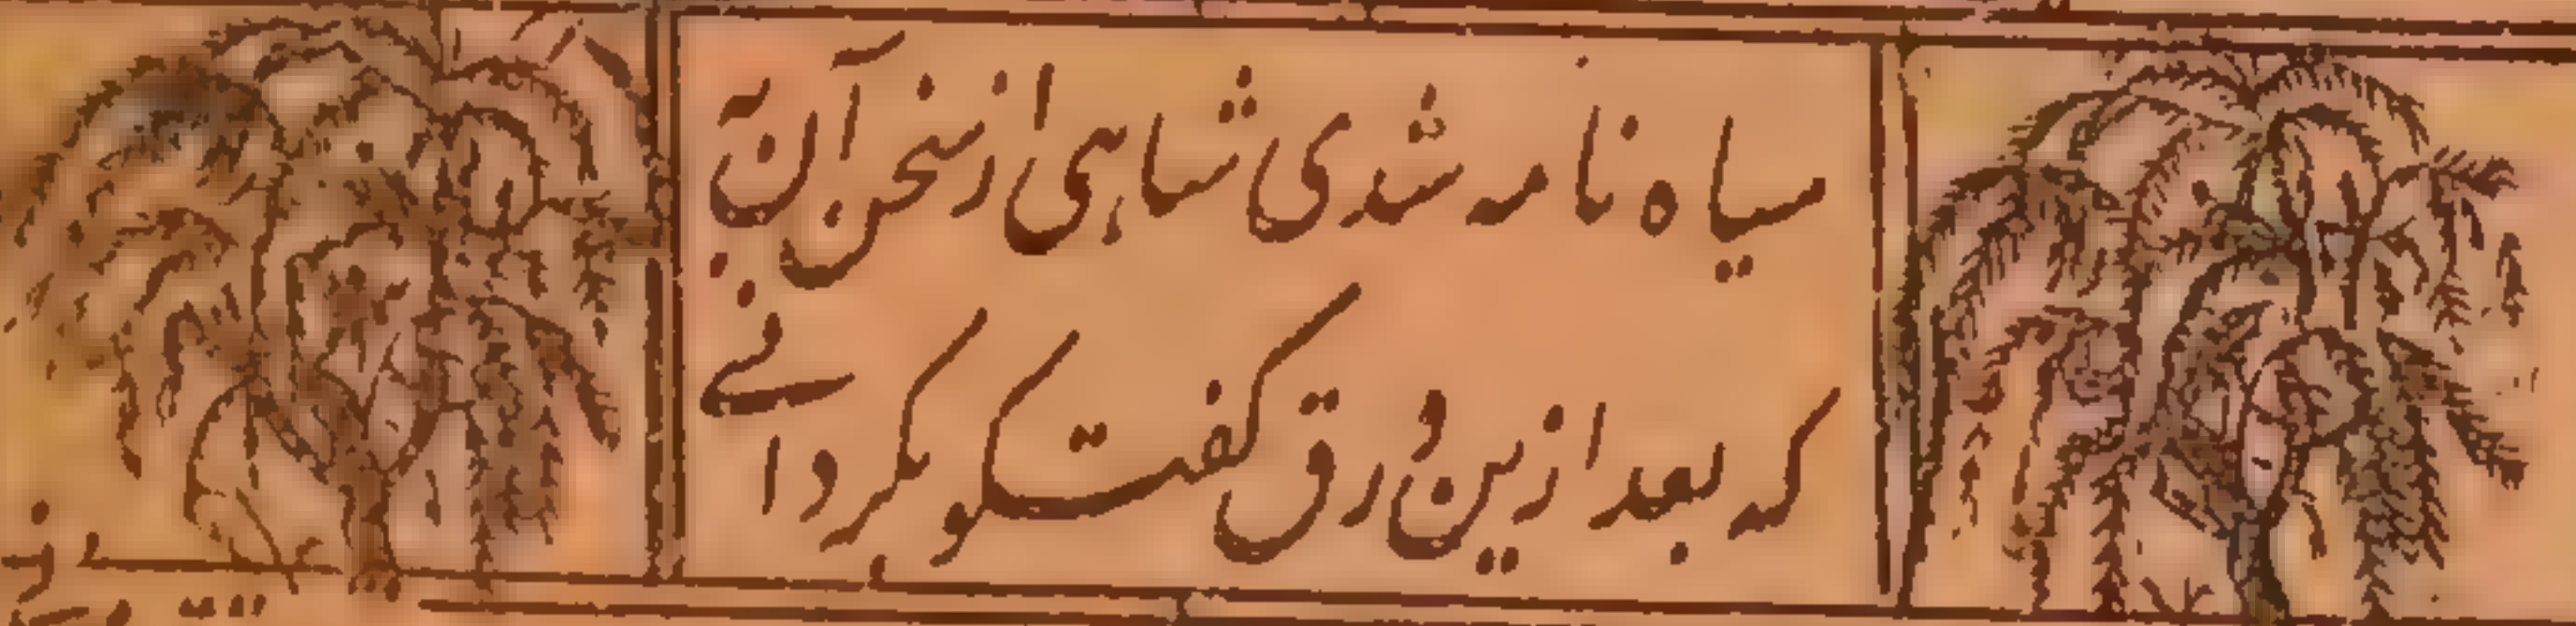 سیاه نامه شدی شاهی از سخن آن به
که بعد ازین ورق گفت‌وگو بگردانے